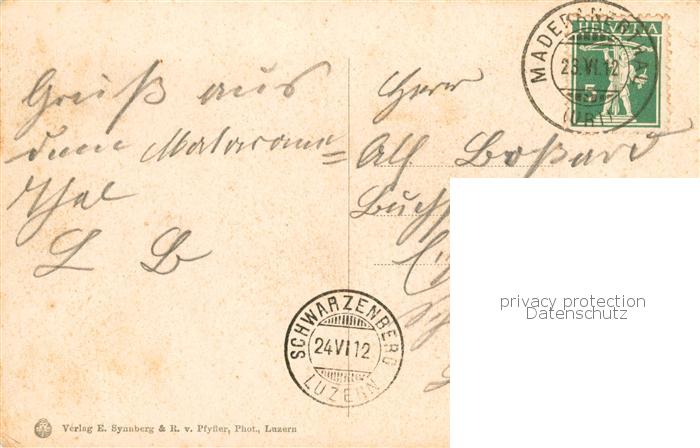 HELVETIA
5
MADERANERTAL
23.VI.12
(URI)
Gruß aus
dem Maderaner=
Thal
L B
Herr
Alf. Boßard
SCHWARZENBERG
24 VI 12
LUZERN
privacy protection
Datenschutz
Verlag E. Synnberg & R. v. Pfyffer, Phot., Luzern